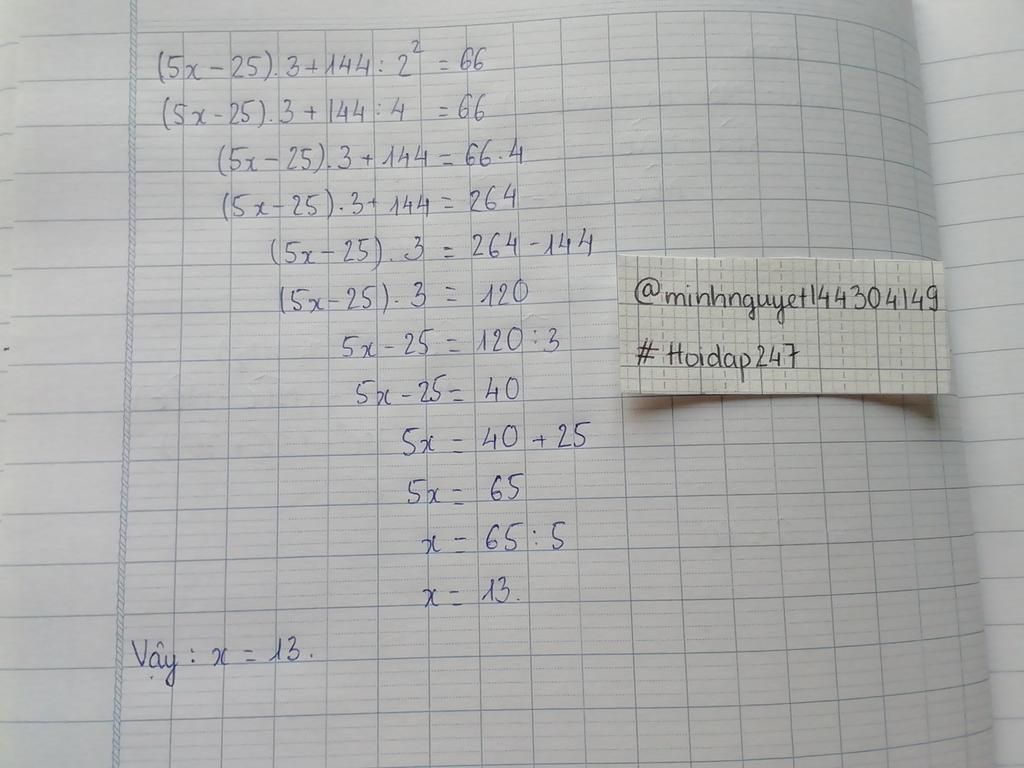 (5x - 25).3 + 144 : 2² = 66
(5x - 25).3 + 144 : 4 = 66
(5x - 25).3 + 144 = 66.4
(5x - 25).3 + 144 = 264
(5x - 25).3 = 264 - 144
(5x - 25).3 = 120
5x - 25 = 120 : 3
5x - 25 = 40
5x = 40 + 25
5x = 65
x = 65 : 5
x = 13.
Vậy : x = 13.
@minhnguyet144304149
# Hoidap247